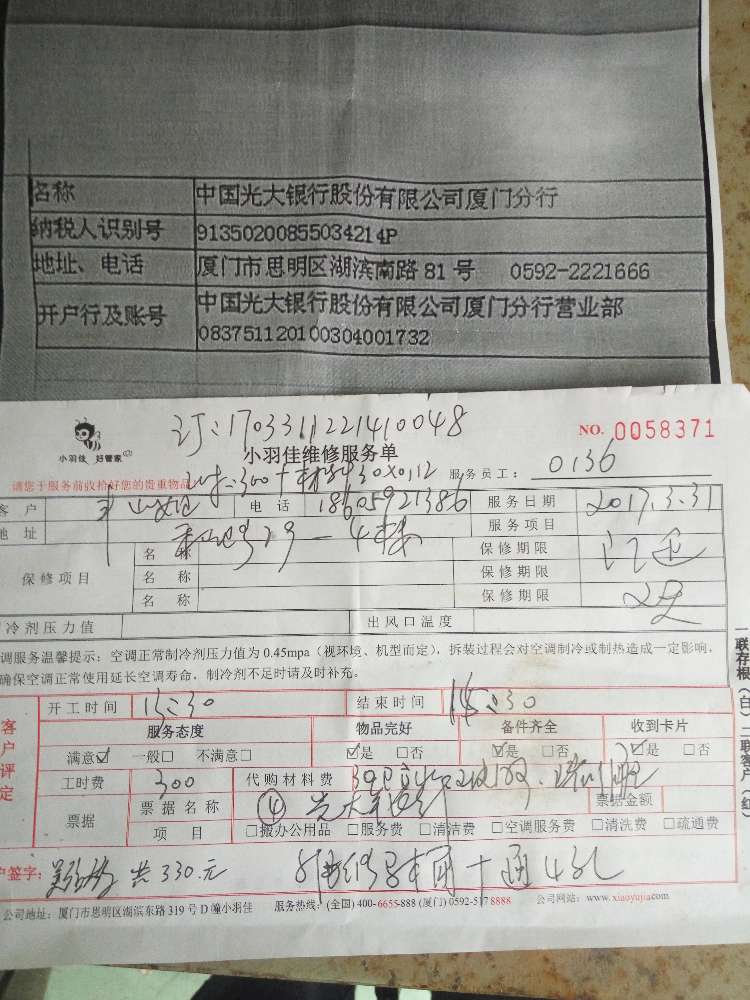 名称 中国光大银行股份有限公司厦门分行
纳税人识别号 91350200855034214P
地址、电话 厦门市思明区湖滨南路 81 号 0592-2221666
开户行及账号 中国光大银行股份有限公司厦门分行营业部
083751120100304001732
订:1703311221410048
小羽佳 好管家
小羽佳维修服务单
NO. 0058371
请您于服务前收拾好您的贵重物品
300+材料30×0.112
服务员工: 0136
客 户 电 话 18605921386 服务日期 2017.3.31
地 址 服务项目
保修项目 名 称 保修期限
名 称 保修期限
名 称 保修期限
冷剂压力值 出风口温度
调服务温馨提示:空调正常制冷剂压力值为 0.45mpa(视环境、机型而定),拆装过程会对空调制冷或制热造成一定影响,
确保空调正常使用延长空调寿命,制冷剂不足时请及时补充。
客户评定
开工时间 结束时间
服务态度 物品完好 备件齐全 收到卡片
满意☑ 一般□ 不满意□ ☑是 □否 ☑是 □否 ☑是 □否
工时费 300 代购材料费
票据 票据名称 ④ 光大 票据金额
项 目 □搬办公用品 □服务费 □清洁费 □空调服务费 □清洗费 □疏通费
户签字: 共330.元
公司地址:厦门市思明区湖滨东路 319 号 D 幢小羽佳 服务热线:(全国) 400-6655-888 (厦门) 0592-5178888 公司网站:www.xiaoyujia.com
一联存根(白)二联客户(红)